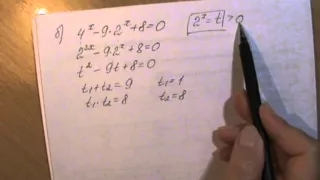 б) 4ˣ-9·2ˣ+8=0 2ˣ=t >0
2²ˣ-9·2ˣ+8=0
t²-9t+8=0
t₁+t₂=9 t₁=1
t₁·t₂=8 t₂=8